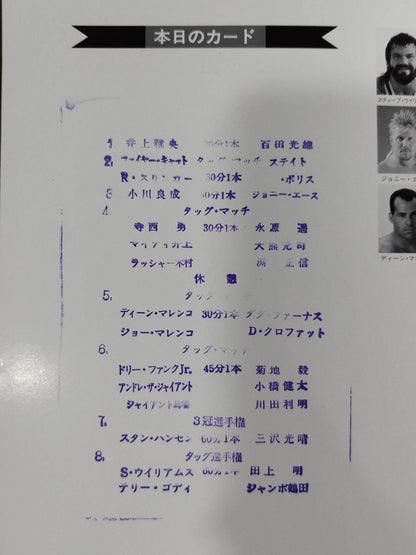 本日のカード
1. 井上雅央 20分1本 百田光雄
2. タッグ・マッチ ステイト
R・スリンガー 30分1本 ・ポリス
3 小川良成 30分1本 ジョニー・エース
4. タッグ・マッチ
寺西 勇 30分1本 永源 遙
マイティ井上 大熊元司
ラッシャー木村 渕 正信
休憩
5. タッグ
ディーン・マレンコ 30分1本 ダグ・ファーナス
ジョー・マレンコ D・クロファット
6. タッグ・マッチ
ドリー・ファンクJr. 45分1本 菊地 毅
アンドレ・ザ・ジャイアント 小橋健太
ジャイアント馬場 川田利明
7. 3冠選手権
スタン・ハンセン 60分1本 三沢光晴
8. タッグ選手権
S・ウイリアムス 60分1本 田上 明
テリー・ゴディ ジャンボ鶴田
スティーブ・ウイリ
ジョニー・エ
ディーン・マ